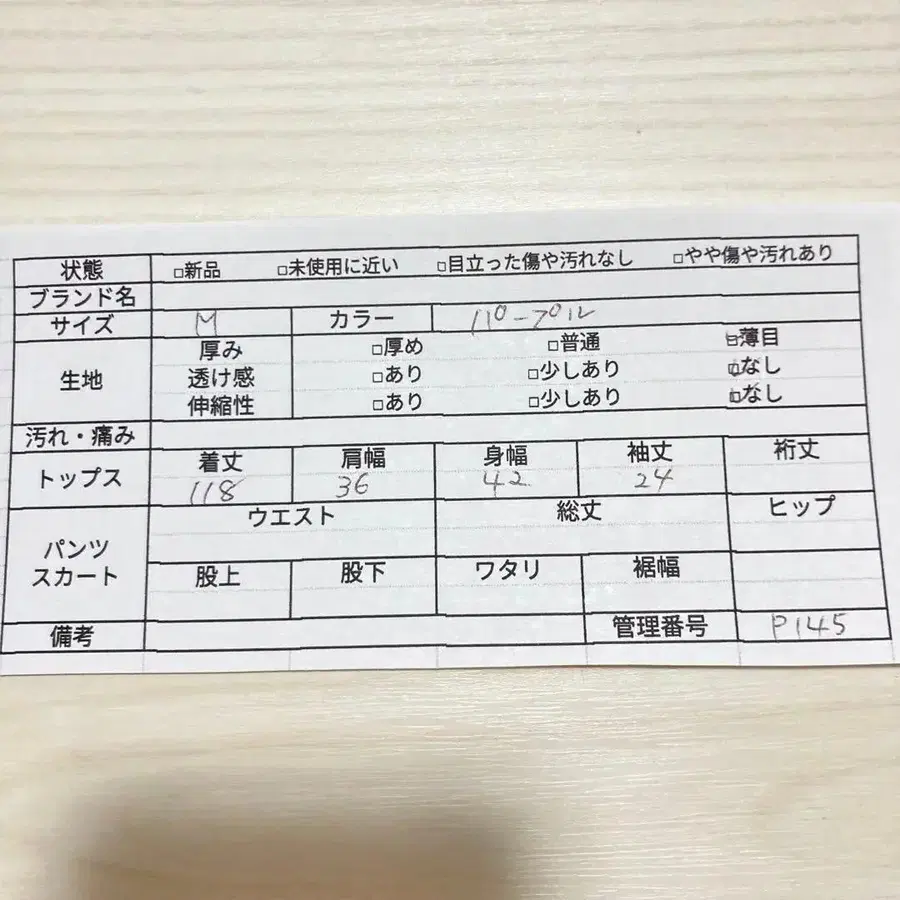 状態 □新品 □未使用に近い □目立った傷や汚れなし □やや傷や汚れあり
ブランド名
サイズ M カラー パープル
生地 厚み □厚め □普通 ☑薄目
透け感 □あり □少しあり ☑なし
伸縮性 □あり □少しあり ☑なし
汚れ・痛み
トップス 着丈 肩幅 身幅 袖丈 裄丈
118 36 42 24
パンツ スカート ウエスト 総丈 ヒップ
股上 股下 ワタリ 裾幅
備考 管理番号 P145